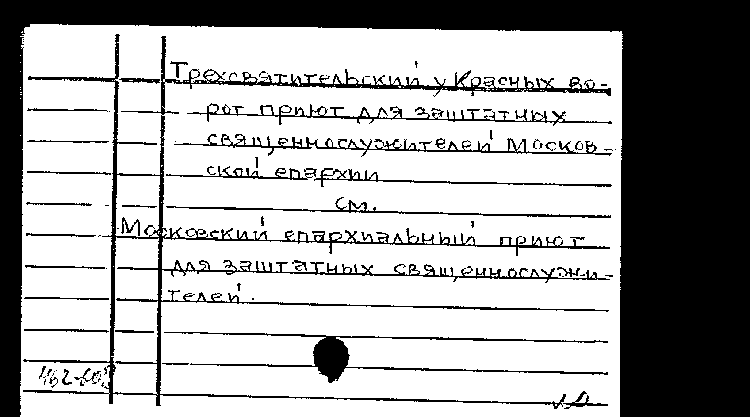 Трехсвятительский у Красных во-
рот приют для заштатных
священнослужителей Москов-
ской епархии
см.
Московский епархиальный приют
для заштатных священнослужи-
телей.